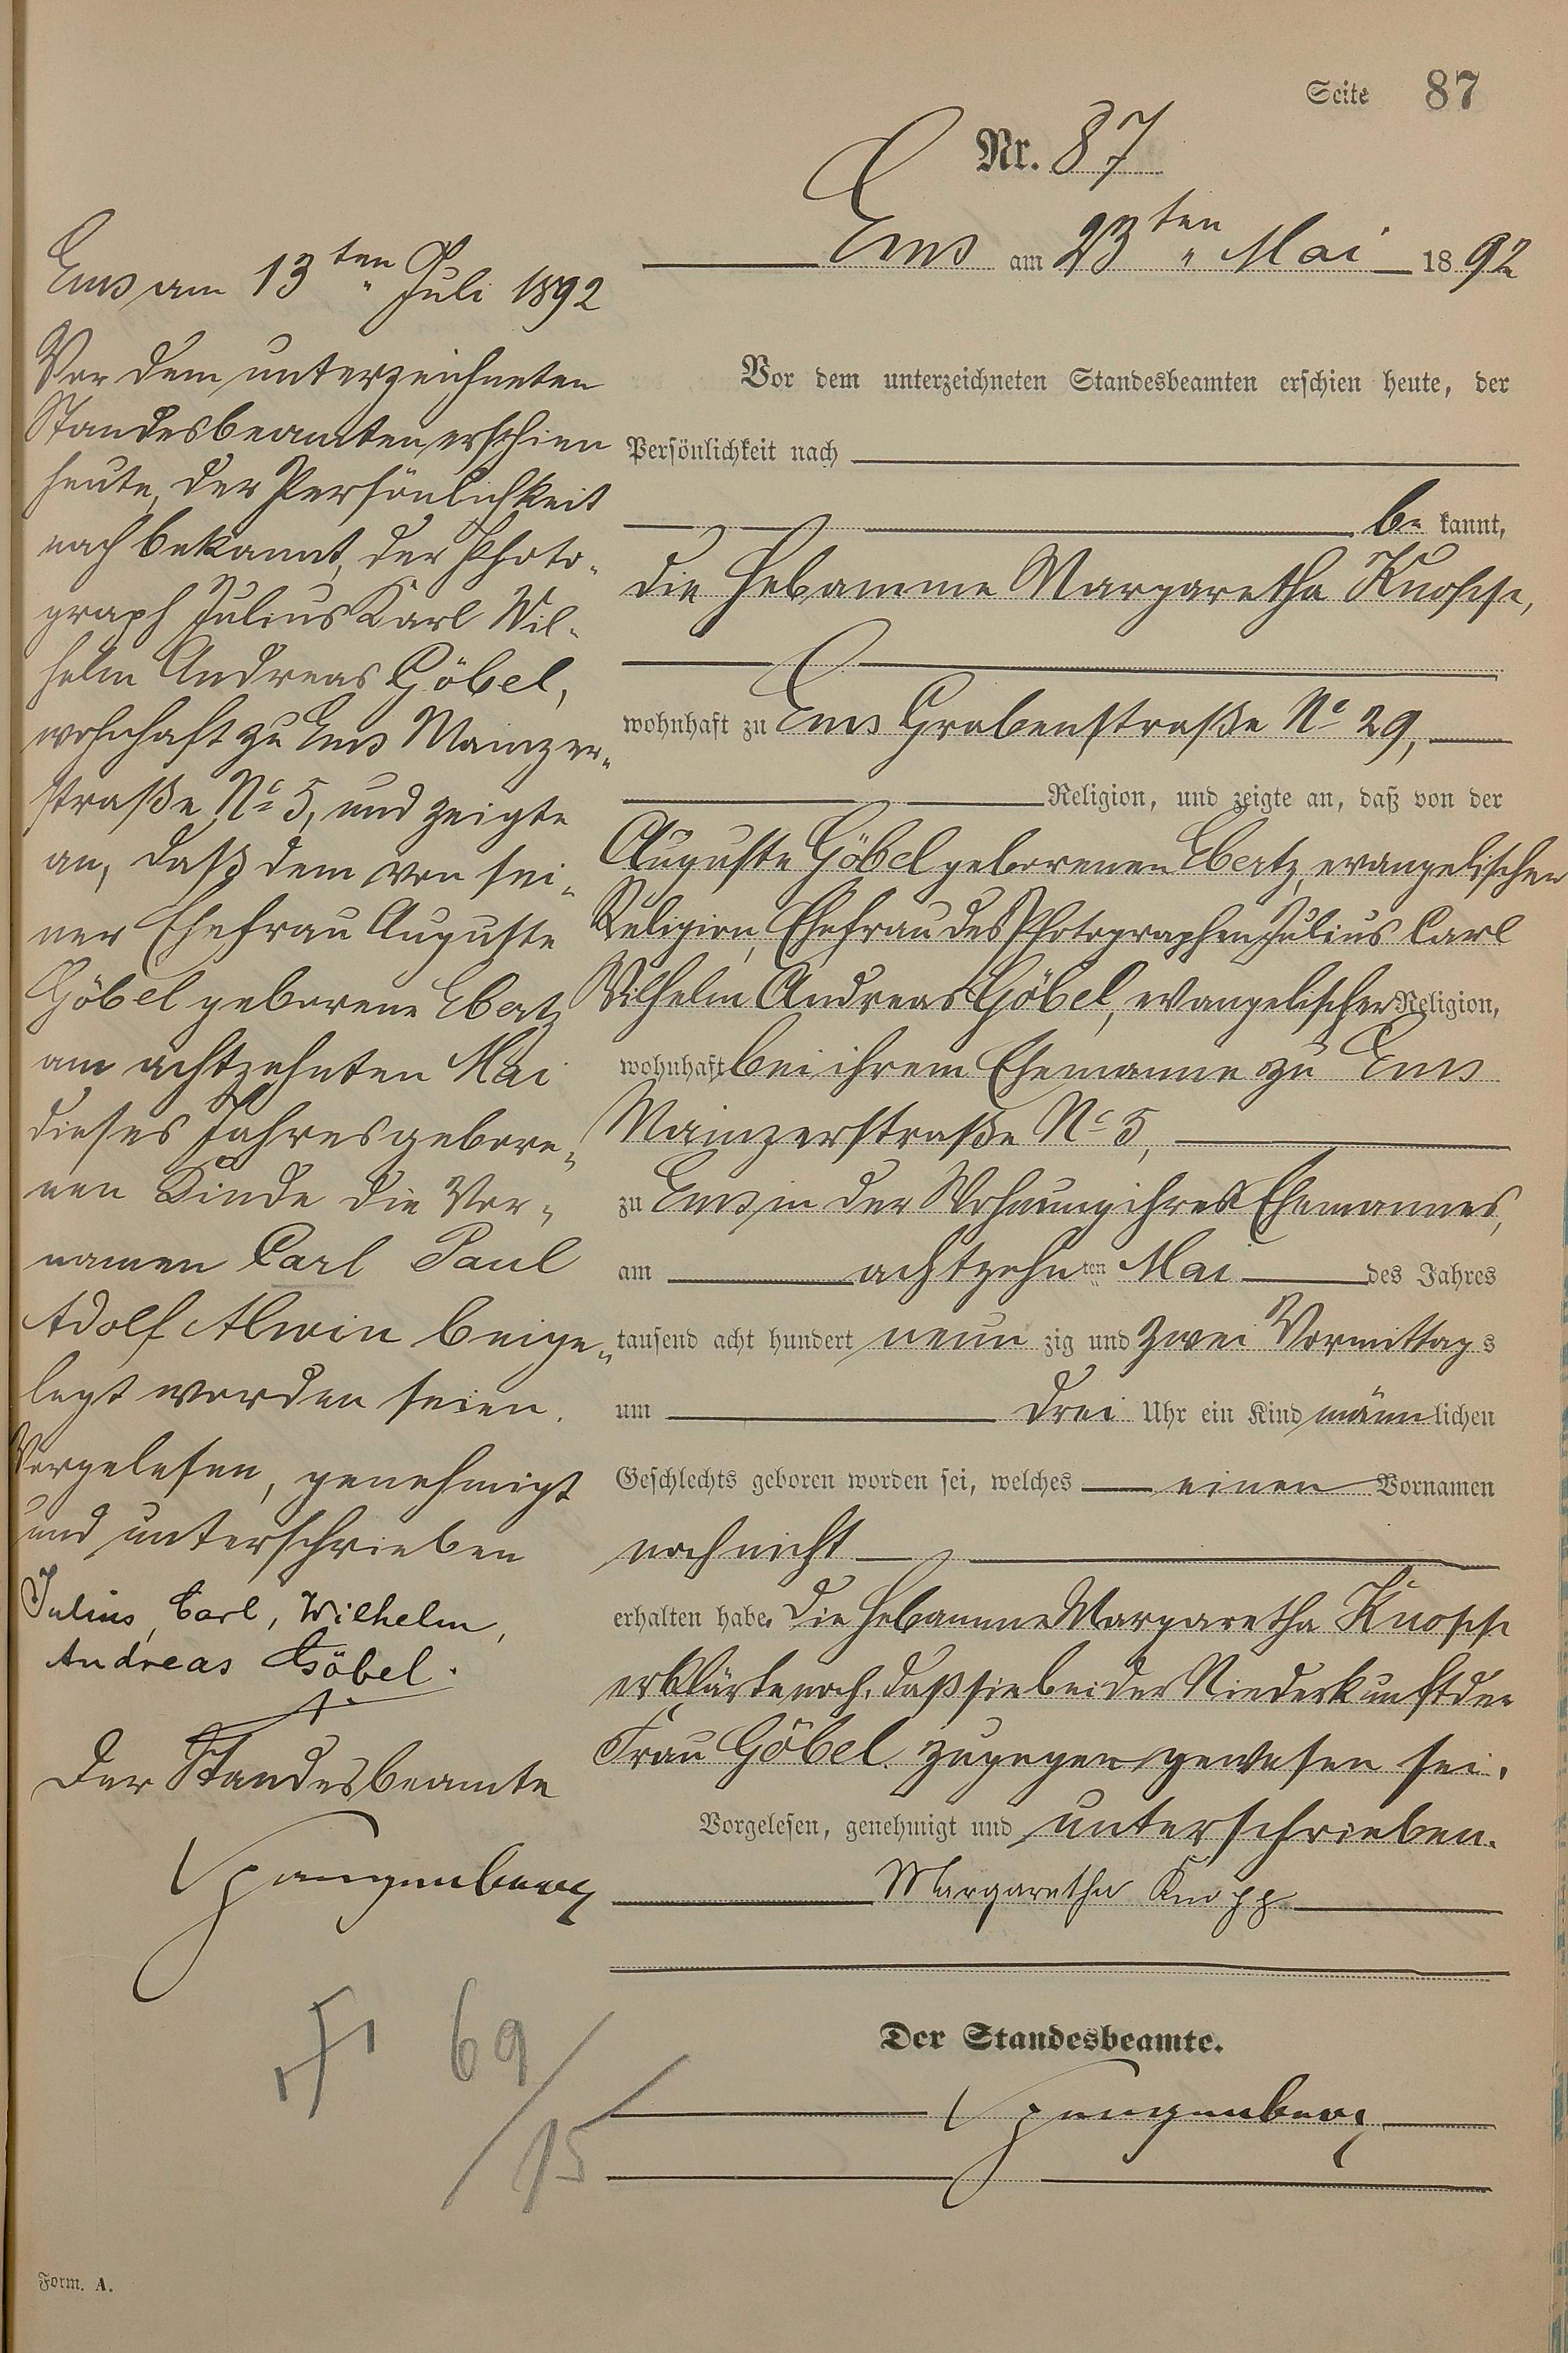 Seite 87
Nr. 87
Ems am 23ten Mai 1892
Vor dem unterzeichneten Standesbeamten erschien heute, der
Persönlichkeit nach
be kannt,
die Hebamme Margaretha Knopp,
wohnhaft zu Ems Grabenstraße No 29,
Religion, und zeigte an, daß von der
Auguste Göbel geborenen Ebertz, evangelischer
Religion, Ehefrau des Photographen Julius Carl
Wilhelm Andreas Göbel, evangelischer Religion,
wohnhaft bei ihrem Ehemanne zu Ems
Mainzerstraße No 5,
zu Ems in der Wohnung ihres Ehemannes,
am achtzehnten Mai des Jahres
tausend acht hundert neun zig und zwei Vormittags
um drei Uhr ein Kind männlichen
Geschlechts geboren worden sei, welches einen Vornamen
noch nicht
erhalten habe. Die Hebamme Margaretha Knopp
erklärte noch, daß sie bei der Niederkunft der
Frau Göbel zugegen gewesen sei.
Vorgelesen, genehmigt und unterschrieben.
Margaretha Knopp
Der Standesbeamte.
Spangenberg
Ems am 13ten Juli 1892
Vor dem unterzeichneten
Standesbeamten erschien
heute, der Persönlichkeit
nach bekannt, der Photo-
graph Julius Karl Wil-
helm Andreas Göbel,
wohnhaft zu Ems Mainzer-
straße No 5, und zeigte
an, daß dem von sei-
ner Ehefrau Auguste
Göbel geborene Ebertz
am achtzehnten Mai
dieses Jahres gebore-
nen Kinde die Vor-
namen Carl Paul
Adolf Alwin beige-
legt worden seien.
Vorgelesen, genehmigt
und unterschrieben
Julius, Carl, Wilhelm,
Andreas Göbel.
Der Standesbeamte
Spangenberg
69/15
Form. A.